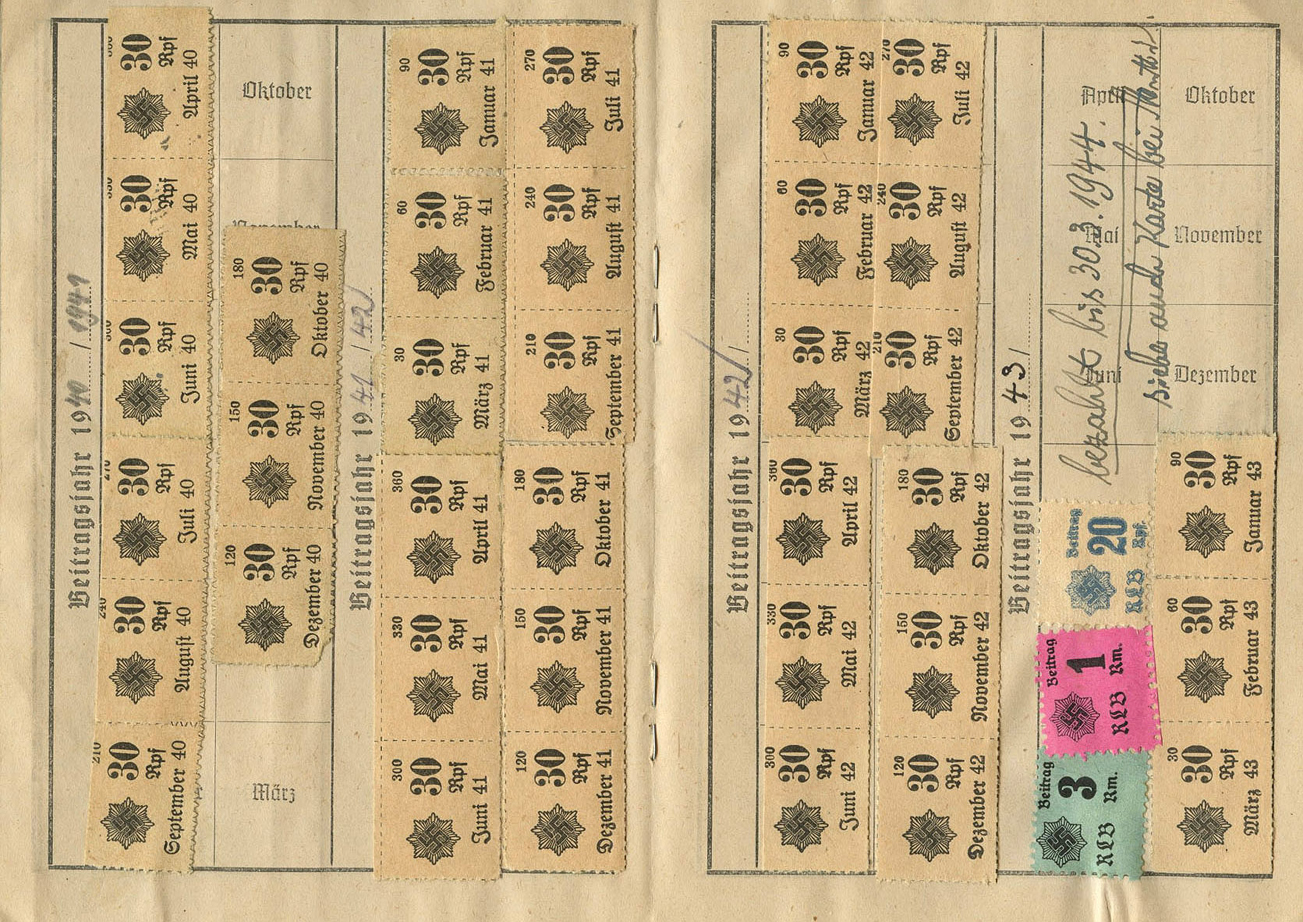 Beitragsjahr 1940/1941
30 Rpf April 40
30 Rpf Mai 40
30 Rpf Juni 40
270 30 Rpf Juli 40
240 30 Rpf August 40
210 30 Rpf September 40
Oktober
November
180 30 Rpf Oktober 40
150 30 Rpf November 40
120 30 Rpf Dezember 40
März
Beitragsjahr 1941/42
90 30 Rpf Januar 41
60 30 Rpf Februar 41
30 30 Rpf März 41
360 30 Rpf April 41
330 30 Rpf Mai 41
300 30 Rpf Juni 41
270 30 Rpf Juli 41
240 30 Rpf August 41
210 30 Rpf September 41
180 30 Rpf Oktober 41
150 30 Rpf November 41
120 30 Rpf Dezember 41
Beitragsjahr 1942/
90 30 Rpf Januar 42
60 30 Rpf Februar 42
30 30 Rpf März 42
360 30 Rpf April 42
330 30 Rpf Mai 42
300 30 Rpf Juni 42
270 30 Rpf Juli 42
240 30 Rpf August 42
210 30 Rpf September 42
180 30 Rpf Oktober 42
150 30 Rpf November 42
120 30 Rpf Dezember 42
Beitragsjahr 1943/
April
Mai
Juni
bezahlt bis 30.3.1944.
siehe auch Karte bei
Oktober
November
Dezember
Beitrag 20 Rpf. RLB
Beitrag 1 Rm. RLB
Beitrag 3 Rm. RLB
90 30 Rpf Januar 43
60 30 Rpf Februar 43
30 30 Rpf März 43